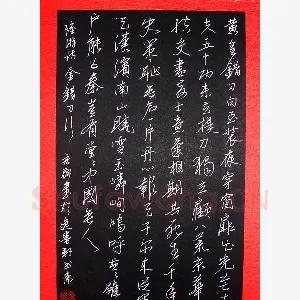 黄金錯刀白玉装夜穿窗扉出光芒丈
夫五十功未立提刀獨立顧八荒京華
結交盡奇士意氣相期共死生千年
史策耻無名一片丹心報天子尔來從軍
天漢濱南山曉雪玉嶙峋嗚呼楚雖三
户能亡秦豈有堂堂中國空無人
陸游詩金錯刀行